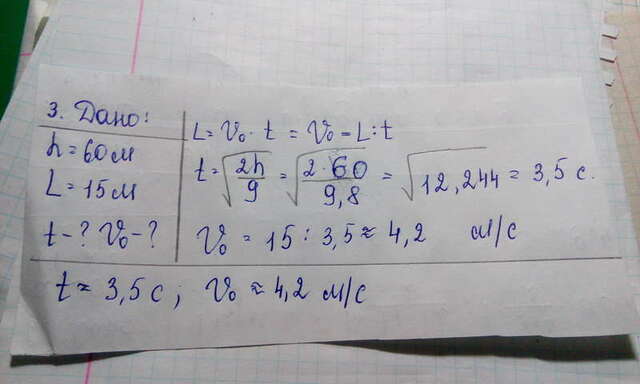 3. Дано:
h = 60 м
L = 15 м
t - ? V₀ - ?
L = V₀ · t = V₀ = L : t
t = √(2h/g) = √(2·60/9,8) = √12,244 = 3,5 с.
V₀ = 15 : 3,5 ≈ 4,2 м/с
t = 3,5 с ; V₀ ≈ 4,2 м/с